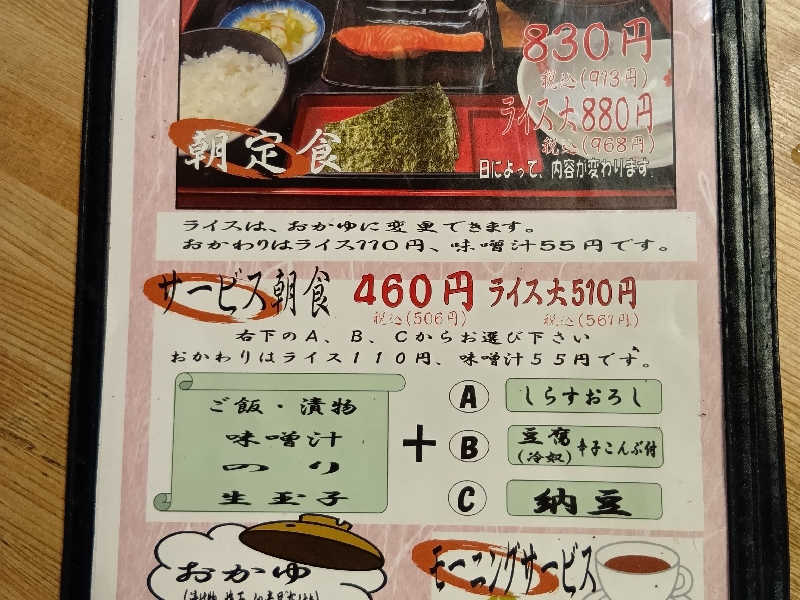 830円
税込(913円)
ライス大880円
税込(968円)
朝定食
日によって、内容が変わります。
ライスは、おかゆに変更できます。
おかわりはライス110円、味噌汁55円です。
サービス朝食 460円 ライス大510円
税込(506円) 税込(561円)
右下のA、B、Cからお選び下さい
おかわりはライス110円、味噌汁55円です。
ご飯・漬物
味噌汁
のり
生玉子
+
A しらすおろし
B 豆腐(冷奴)辛子こんぶ付
C 納豆
おかゆ
モーニングサービス